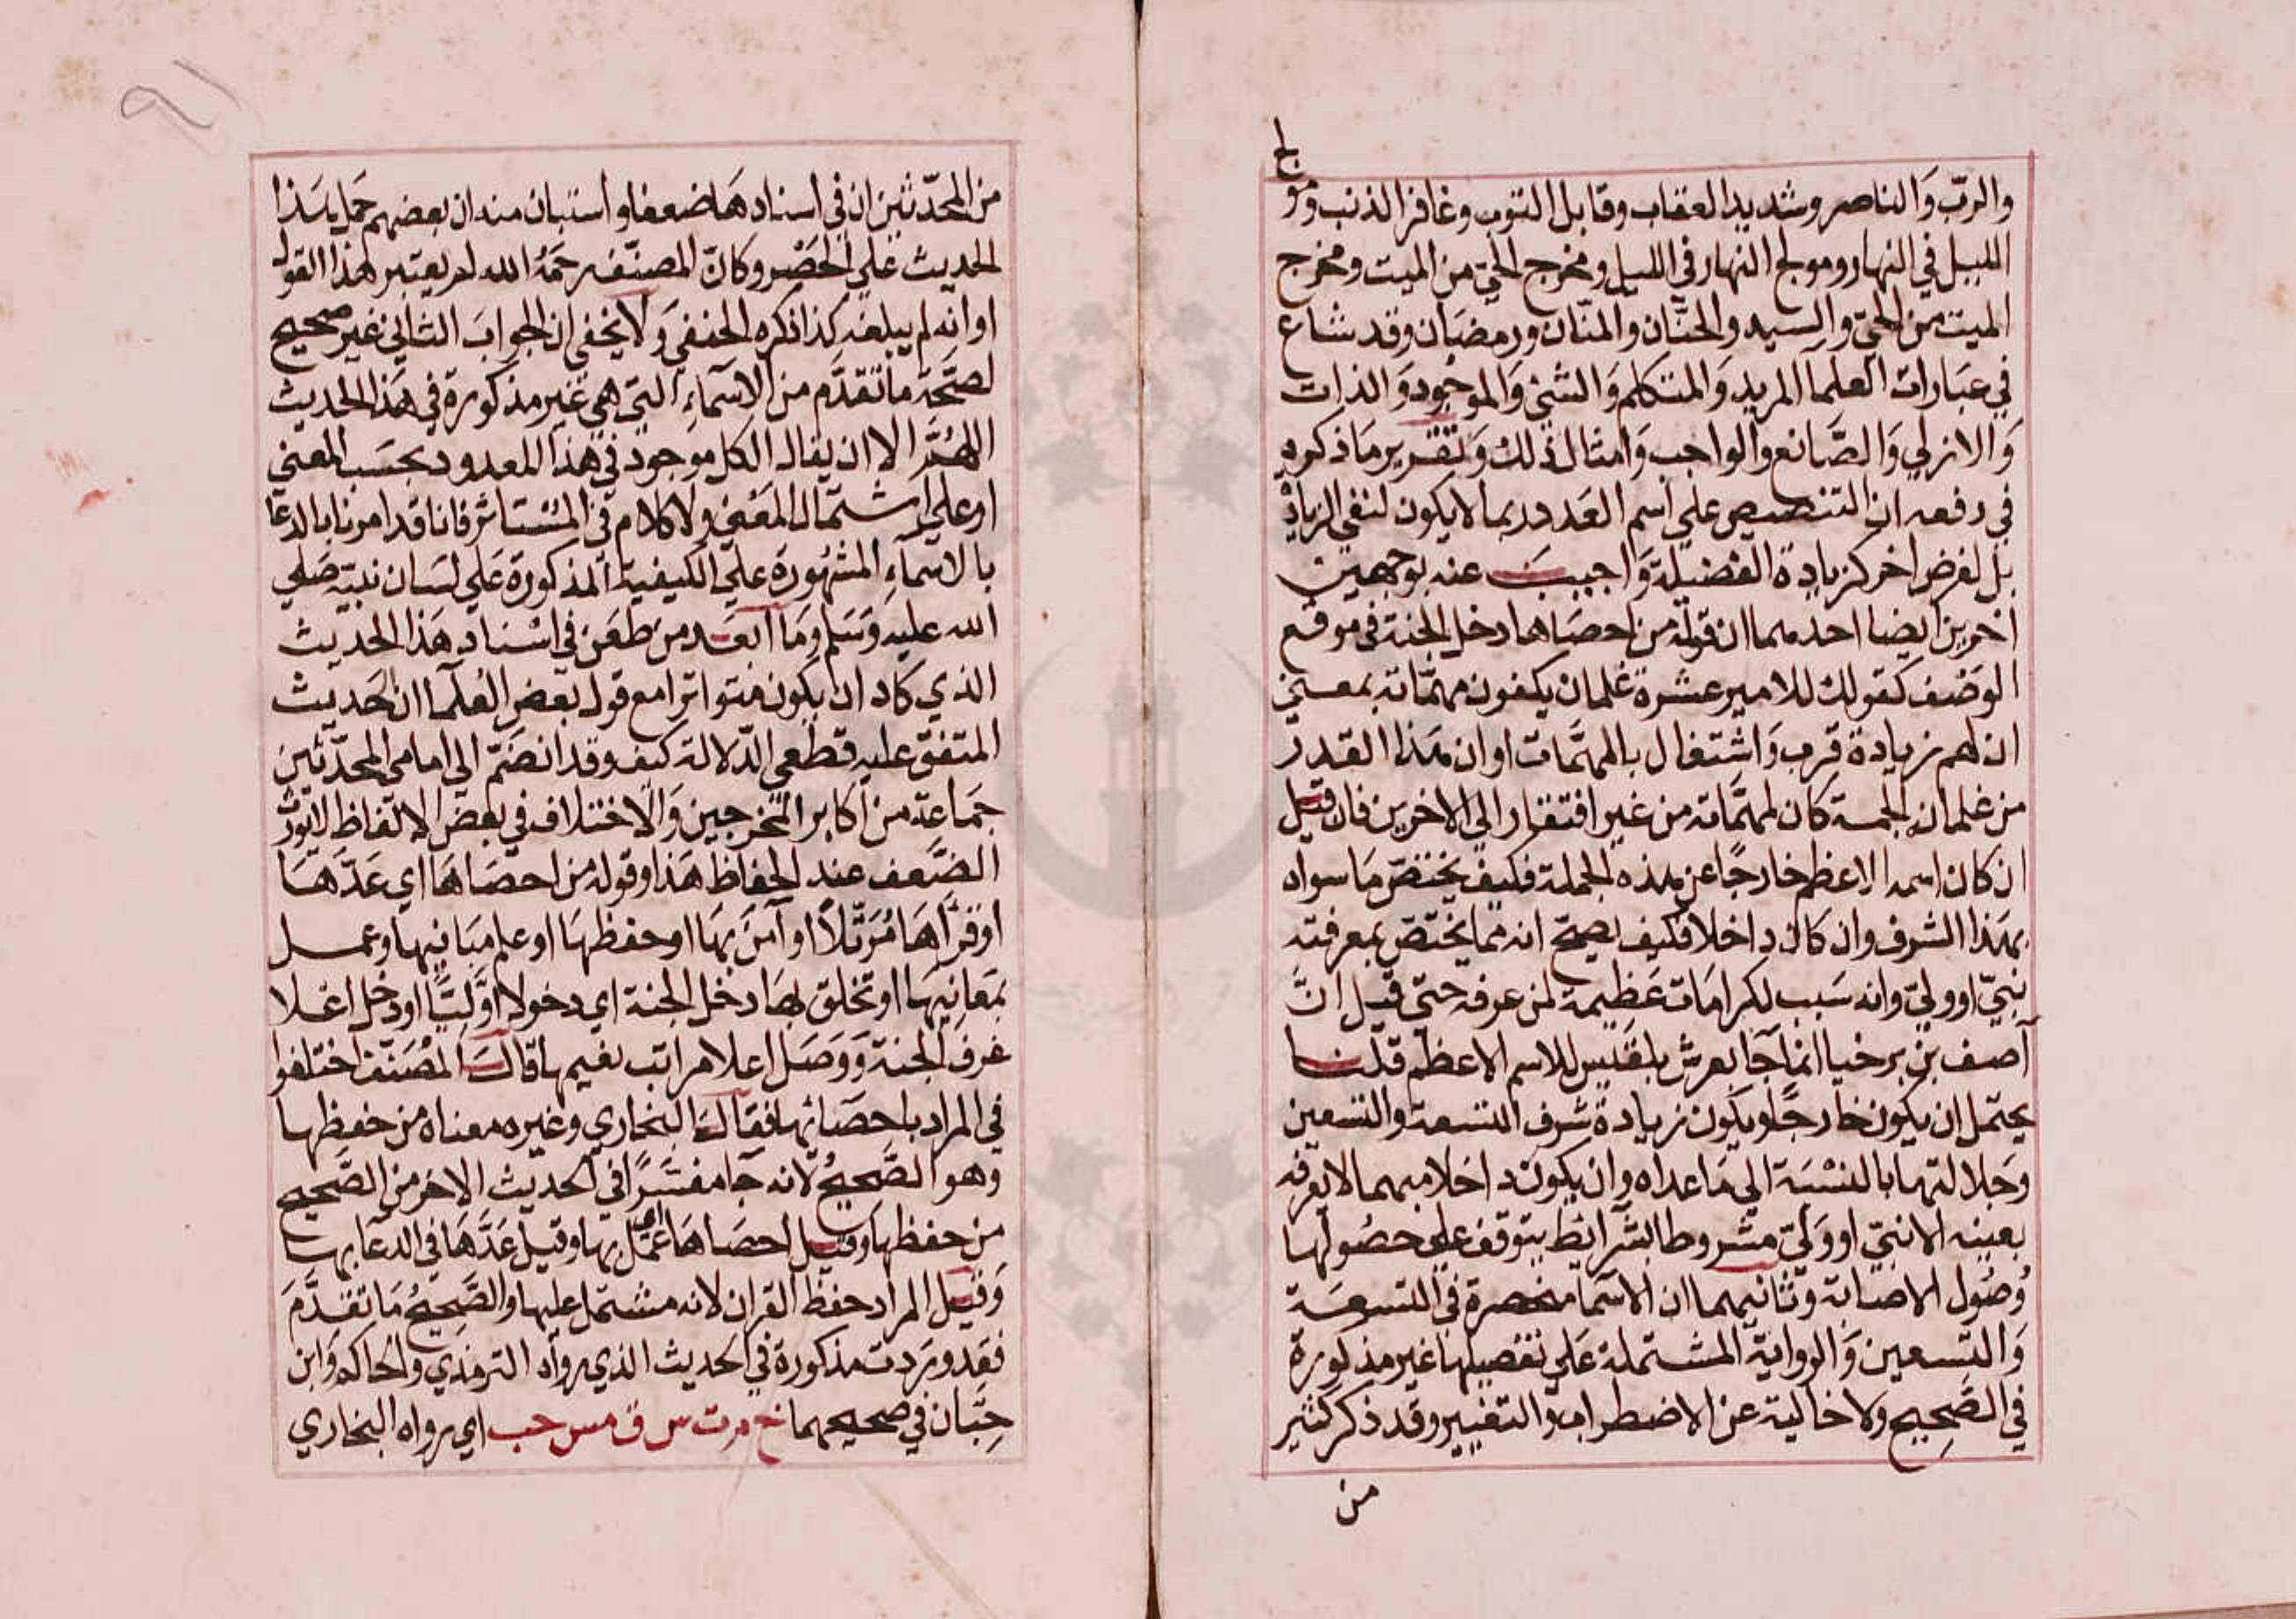 والربّ وَالناصر وشديد العقاب وقابل التوب وغافر الذنب ومو
لج
الليل في النهار ومولج النهار في الليل ومخرج الحيّ من الميت ومخرج
الميت من الحيّ والسيد والحنّان والمنّان ورمضان وقد شاع
في عبَارات العلمآ المريد وَالمتكلم وَالشئ وَالموجود وَالذات
وَالازلي وَالصَّانع وَالواجب وَامثال ذلك وَتقرير مَا ذكروه
في دفعه ان التنصيص على اسم العَدد ربما لا يكون لنفي الزيادة
بل لغرض اخر كزيادة الفضيلة وَاجيبَ عنه بوجهين
اخرين ايضا احدهما ان قوله من احصَاها دخل الجنة في موقع
الوَصْف كقولك للامير عشرة غلمان يكفون مهمّاته بمعنى
ان لهم زيادة قرب وَاشتغال بالمهمّات او ان هذا القدر
من غلمان الجمة كان لمهمَّاته من غير افتقار الى الاخرين فان قيل
ان كان اسمه الاعظم خارجًا عن هذه الجملة فكيف يختصّ مَا سواه
بهَذا الشرف وان كان داخلا فكيف يصحّ انه مما يختصّ بمعرفته
نبيّ او وليّ وانه سَبب لكرامَات عَظيمة لمن عرفه حتى قيل انّ
آصف بن برخيا انما جَآ بعرش بلقيس للاسم الاعظم قلنا
يحتمل ان يكون خارجًا ويكون زيادة شرف التسعة والتسعين
وَجلالتها بالنسْبَة الى مَا عداه وان يكون داخلا مبهما لا يعرفه
بعينه الا نبيّ او وَليّ مشروطا بشرائط يتوقف على حصُولها
وُصُول الاصابة وثانيهما ان الاسما منحصرة في التسعَة
وَالتسعين وَالرواية المشتملة عَلى تفصيلها غير مذكورة
في الصَّحيح ولا خالية عن الاضطراب والتغيير وقد ذكر كثير
من
من المحدّثين ان في اسنادهَا ضعفا واستبان منه ان بعضهم حَمل هَذا
الحديث عَلى الحَصْر وكانّ المصنّف رحمَهُ الله لم يعتبر هَذا القول
او انه لم يبلغه كذا ذكره الحنفي وَلا يخفى ان الجوابَ الثاني غير صحيح
لصحَّة ما تقدَّم من الاسمآءِ التي هي غير مذكورة في هَذا الحديث
اللهُمَّ الا ان يقال الكل موجود في هَذا المعدود بحسَب المعنى
او على اشتمال المَعْنى ولا كلام في المسْتاثر فانا قد امرنا بالدعا
بالاسمآءِ المشهُورة عَلى الكيفية المذكورة عَلى لسَان نبيّه صَلى
الله عليه وَسَلم ومَا ابعَد من طعَن في اسْناد هَذا الحديث
الذي كاد ان يكون متواترا مع قول بعض العُلمآ ان حَديث
المتفق عليه قطعي الدّلالة كيف وقد انضَمّ الى امامي المحدّثين
جمَاعة من اكابر المخرجين وَالاختلاف في بعض الالفاظ لا يورث
الضَّعف عند الحفاظ هَذا وقوله من احصَاهَا اي عَدَّهَا
او قرَأهَا مُرَتّلاً او آمَنَ بهَا او حفظهَا او علم مبَانيها وعمل
بمَعانيهَا او تخلق بهَا دخل الجنة اي دخولا اوَّليًّا او دخل اعلا
غرف الجنة وَوَصَل اعلا مراتب نعيمها قالَ المصَنّف اختلفوا
في المراد باحصَائها فقالَ البخاري وغيره معناه من حفظها
وهو الصَّحيحُ لانه جآ مفسَّرًا في الحديث الاخر من الصَّحيح
من حفظها وقيل احصَاهَا اي عمل بها وقيل عَدَّهَا في الدعآ بها
وَقيل المراد حفظ القران لانه مشتمل عليها والصَّحيحُ مَا تقدَّمَ
فقد وَرَدت مذكورة في الحديث الذي رواه الترمذي والحاكم وَابن
حِبَّان في صحيحهما خ م ت س ق مس حب اي رواه البخاري